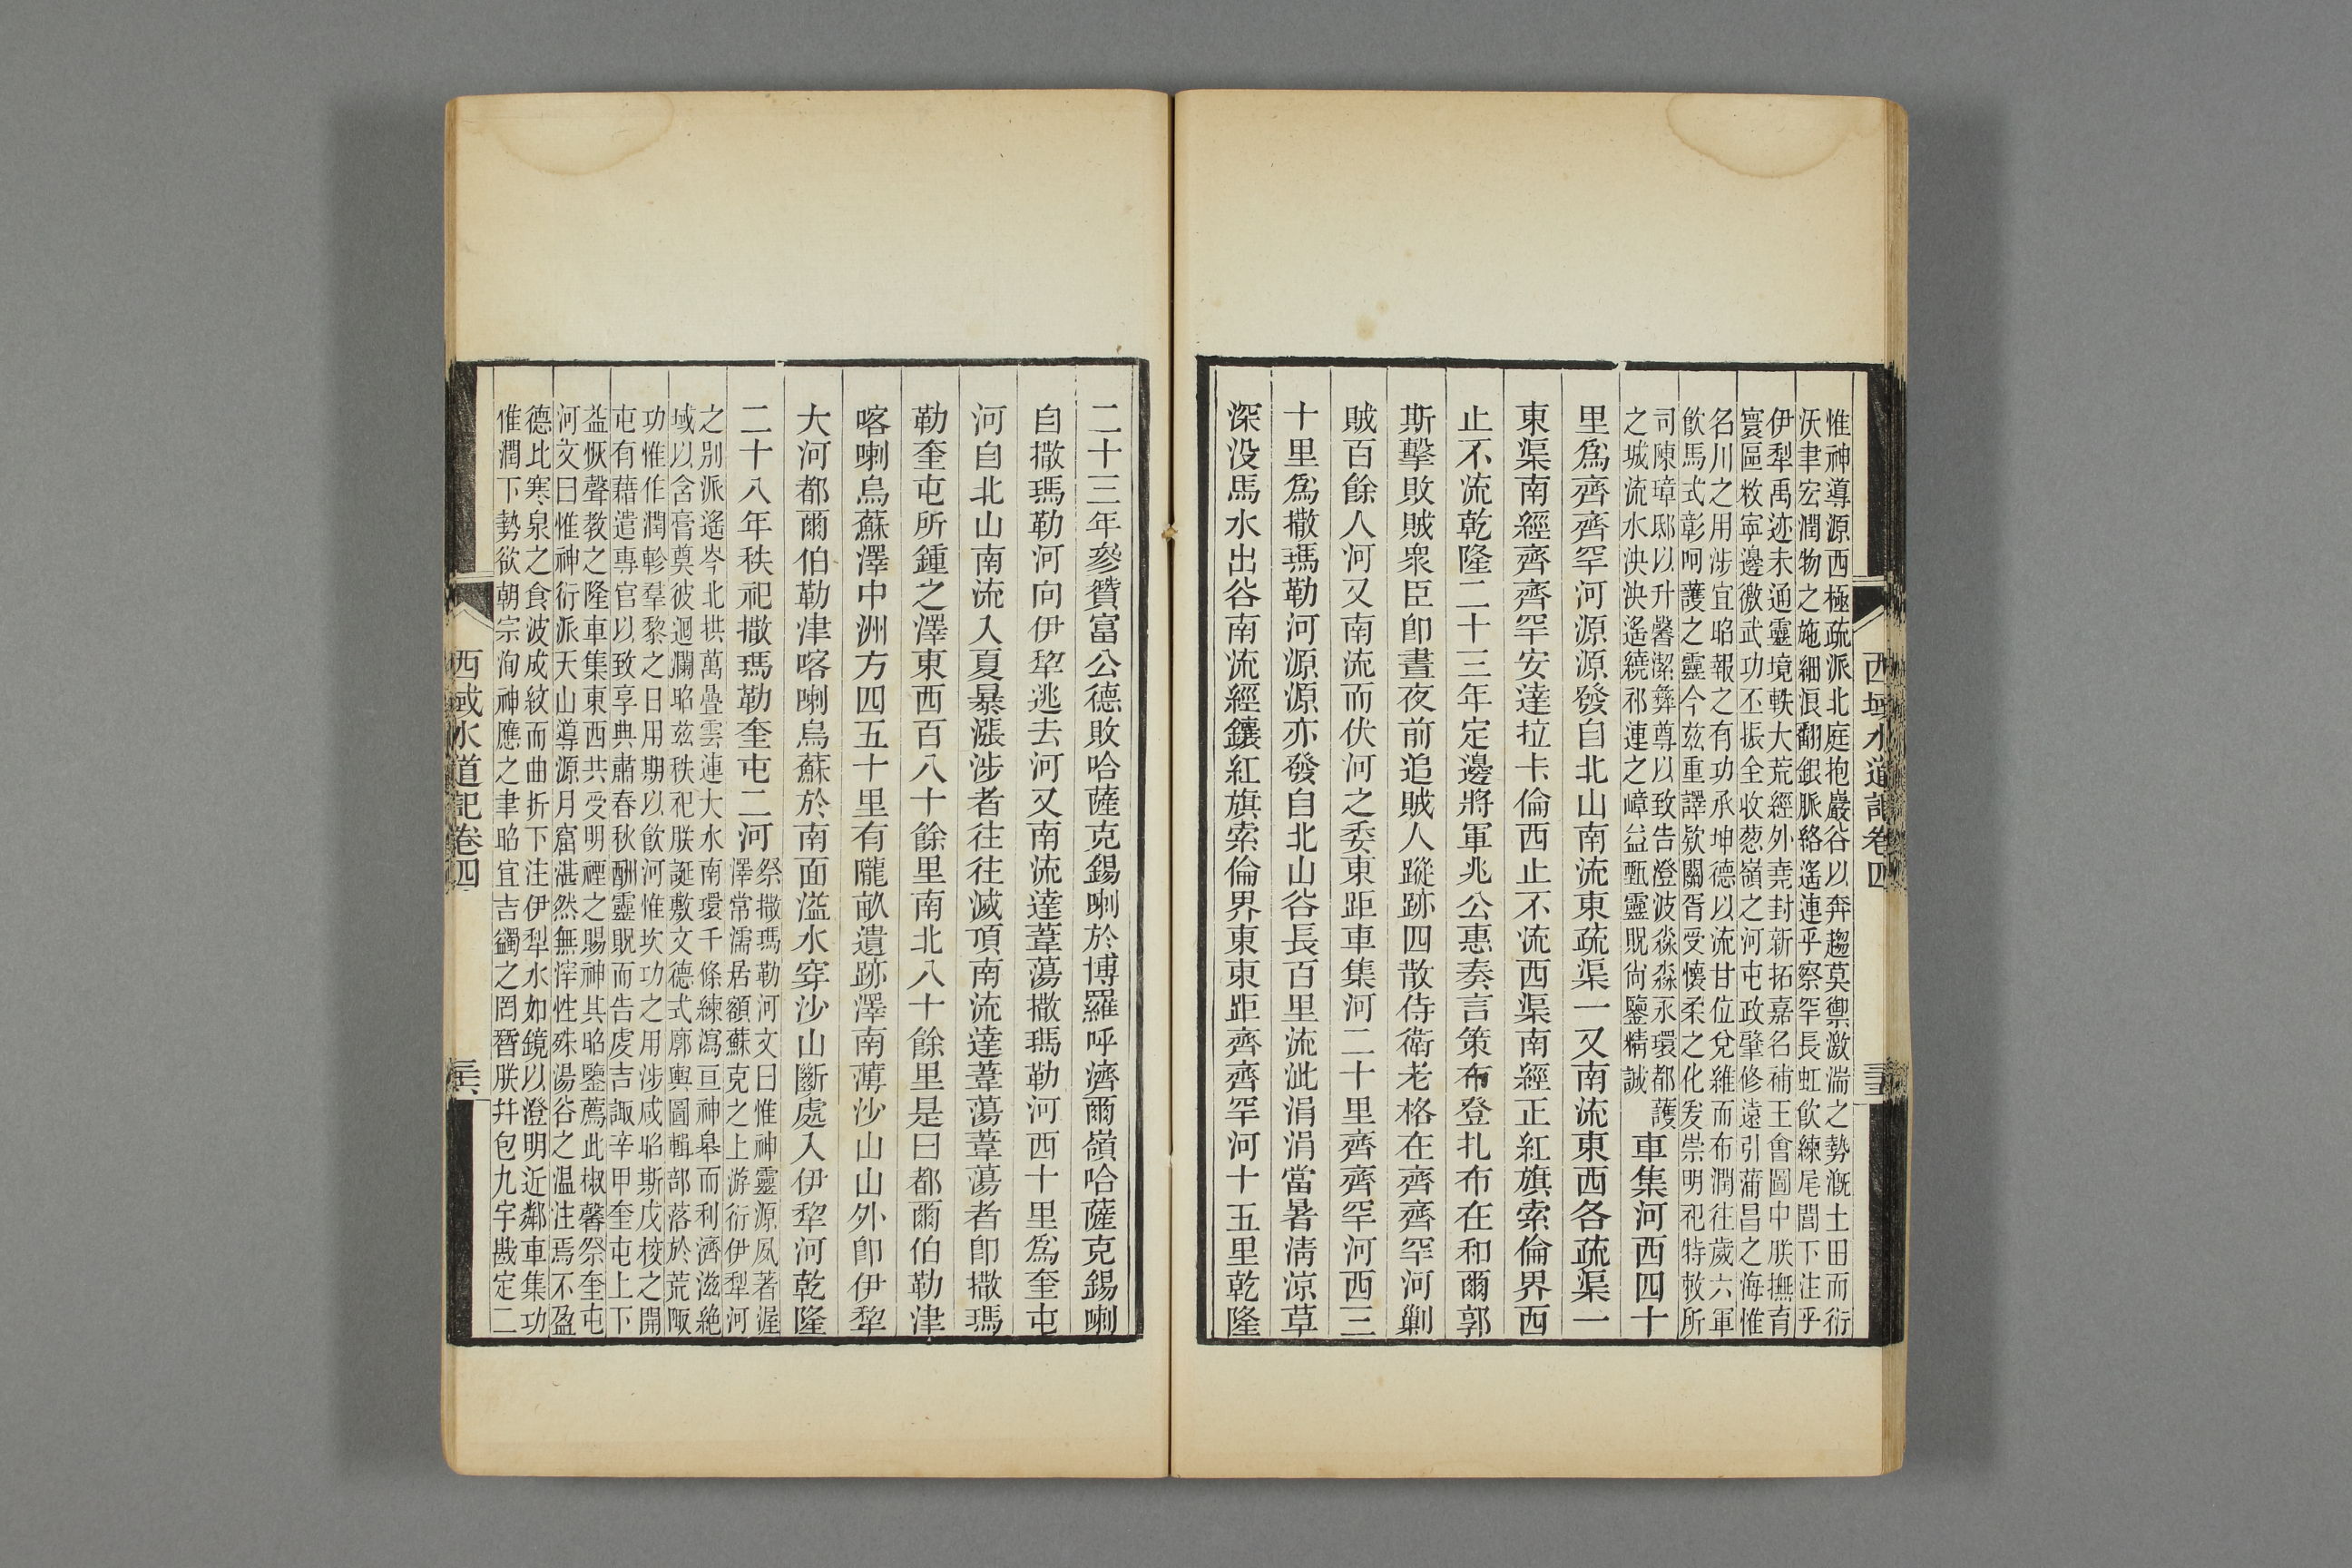 惟神導源西極疏派北庭抱巖谷以奔趨莫禦激湍之勢漑土田而衍
沃聿宏潤物之施細浪翻銀脈絡遙連乎察罕長虹飲練尾閭下注乎
伊犁禹迹未通靈境軼大荒經外堯封新拓嘉名補王會圖中朕撫育
寰區敉寧邊徼武功丕振全收葱嶺之河屯政肇修遠引蒲昌之海惟
名川之用涉宜昭報之有功承坤德以流甘位兌維而布潤往歲六軍
飲馬式彰呵護之靈今玆重譯欵關胥受懷柔之化爰崇明祀特敕所
司陳璋邸以升馨潔彝尊以致告澄波淼淼永環都護
之城流水泱泱遙繞祁連之嶂益甄靈貺尙鑒精誠
車集河西四十
里爲齊齊罕河源源發自北山南流東疏渠一又南流東西各疏渠一
東渠南經齊齊罕安達拉卡倫西止不流西渠南經正紅旗索倫界西
止不流乾隆二十三年定邊將軍兆公惠奏言策布登扎布在和爾郭
斯擊敗賊衆臣卽晝夜前追賊人蹤跡四散侍衛老格在齊齊罕河剿
賊百餘人河又南流而伏河之委東距車集河二十里齊齊罕河西三
十里爲撒瑪勒河源源亦發自北山谷長百里流泚涓涓當暑淸涼草
深没馬水出谷南流經鑲紅旗索倫界東東距齊齊罕河十五里乾隆
西域水道記卷四
三十五
二十三年參贊富公德敗哈薩克錫喇於博羅呼濟爾嶺哈薩克錫喇
自撒瑪勒河向伊犂逃去河又南流達葦蕩撒瑪勒河西十里爲奎屯
河自北山南流入夏暴漲涉者往往滅頂南流達葦蕩葦蕩者卽撒瑪
勒奎屯所鍾之澤東西百八十餘里南北八十餘里是曰都爾伯勒津
喀喇烏蘇澤中洲方四五十里有隴畝遺跡澤南薄沙山山外卽伊犂
大河都爾伯勒津喀喇烏蘇於南面溢水穿沙山斷處入伊犂河乾隆
二十八年秩祀撒瑪勒奎屯二河
祭撒瑪勒河文曰惟神靈源夙著渥
澤常濡居額蘇克之上游衍伊犁河
之別派遙岑北拱萬疊雲連大水南環千條練瀉亘神臯而利濟滋絶
域以含膏奠彼迴瀾昭玆秩祀朕誕敷文德式廓輿圖輯部落於荒陬
功惟作潤軫羣黎之日用期以飮河惟坎功之用涉咸昭斯戊校之開
屯有藉遣專官以致享典肅春秋酬靈貺而告虔吉諏辛甲奎屯上下
益恢聲教之隆車集東西共受明禋之賜神其昭鑒薦此椒馨祭奎屯
河文曰惟神衍派天山導源月窟湛然無滓性殊湯谷之温注焉不盈
德比寒泉之食波成紋而曲折下注伊犁水如鏡以澄明近鄰車集功
惟潤下勢欲朝宗洵神應之聿昭宜吉蠲之罔朁朕幷包九宇戡定二
西域水道記卷四
三十六